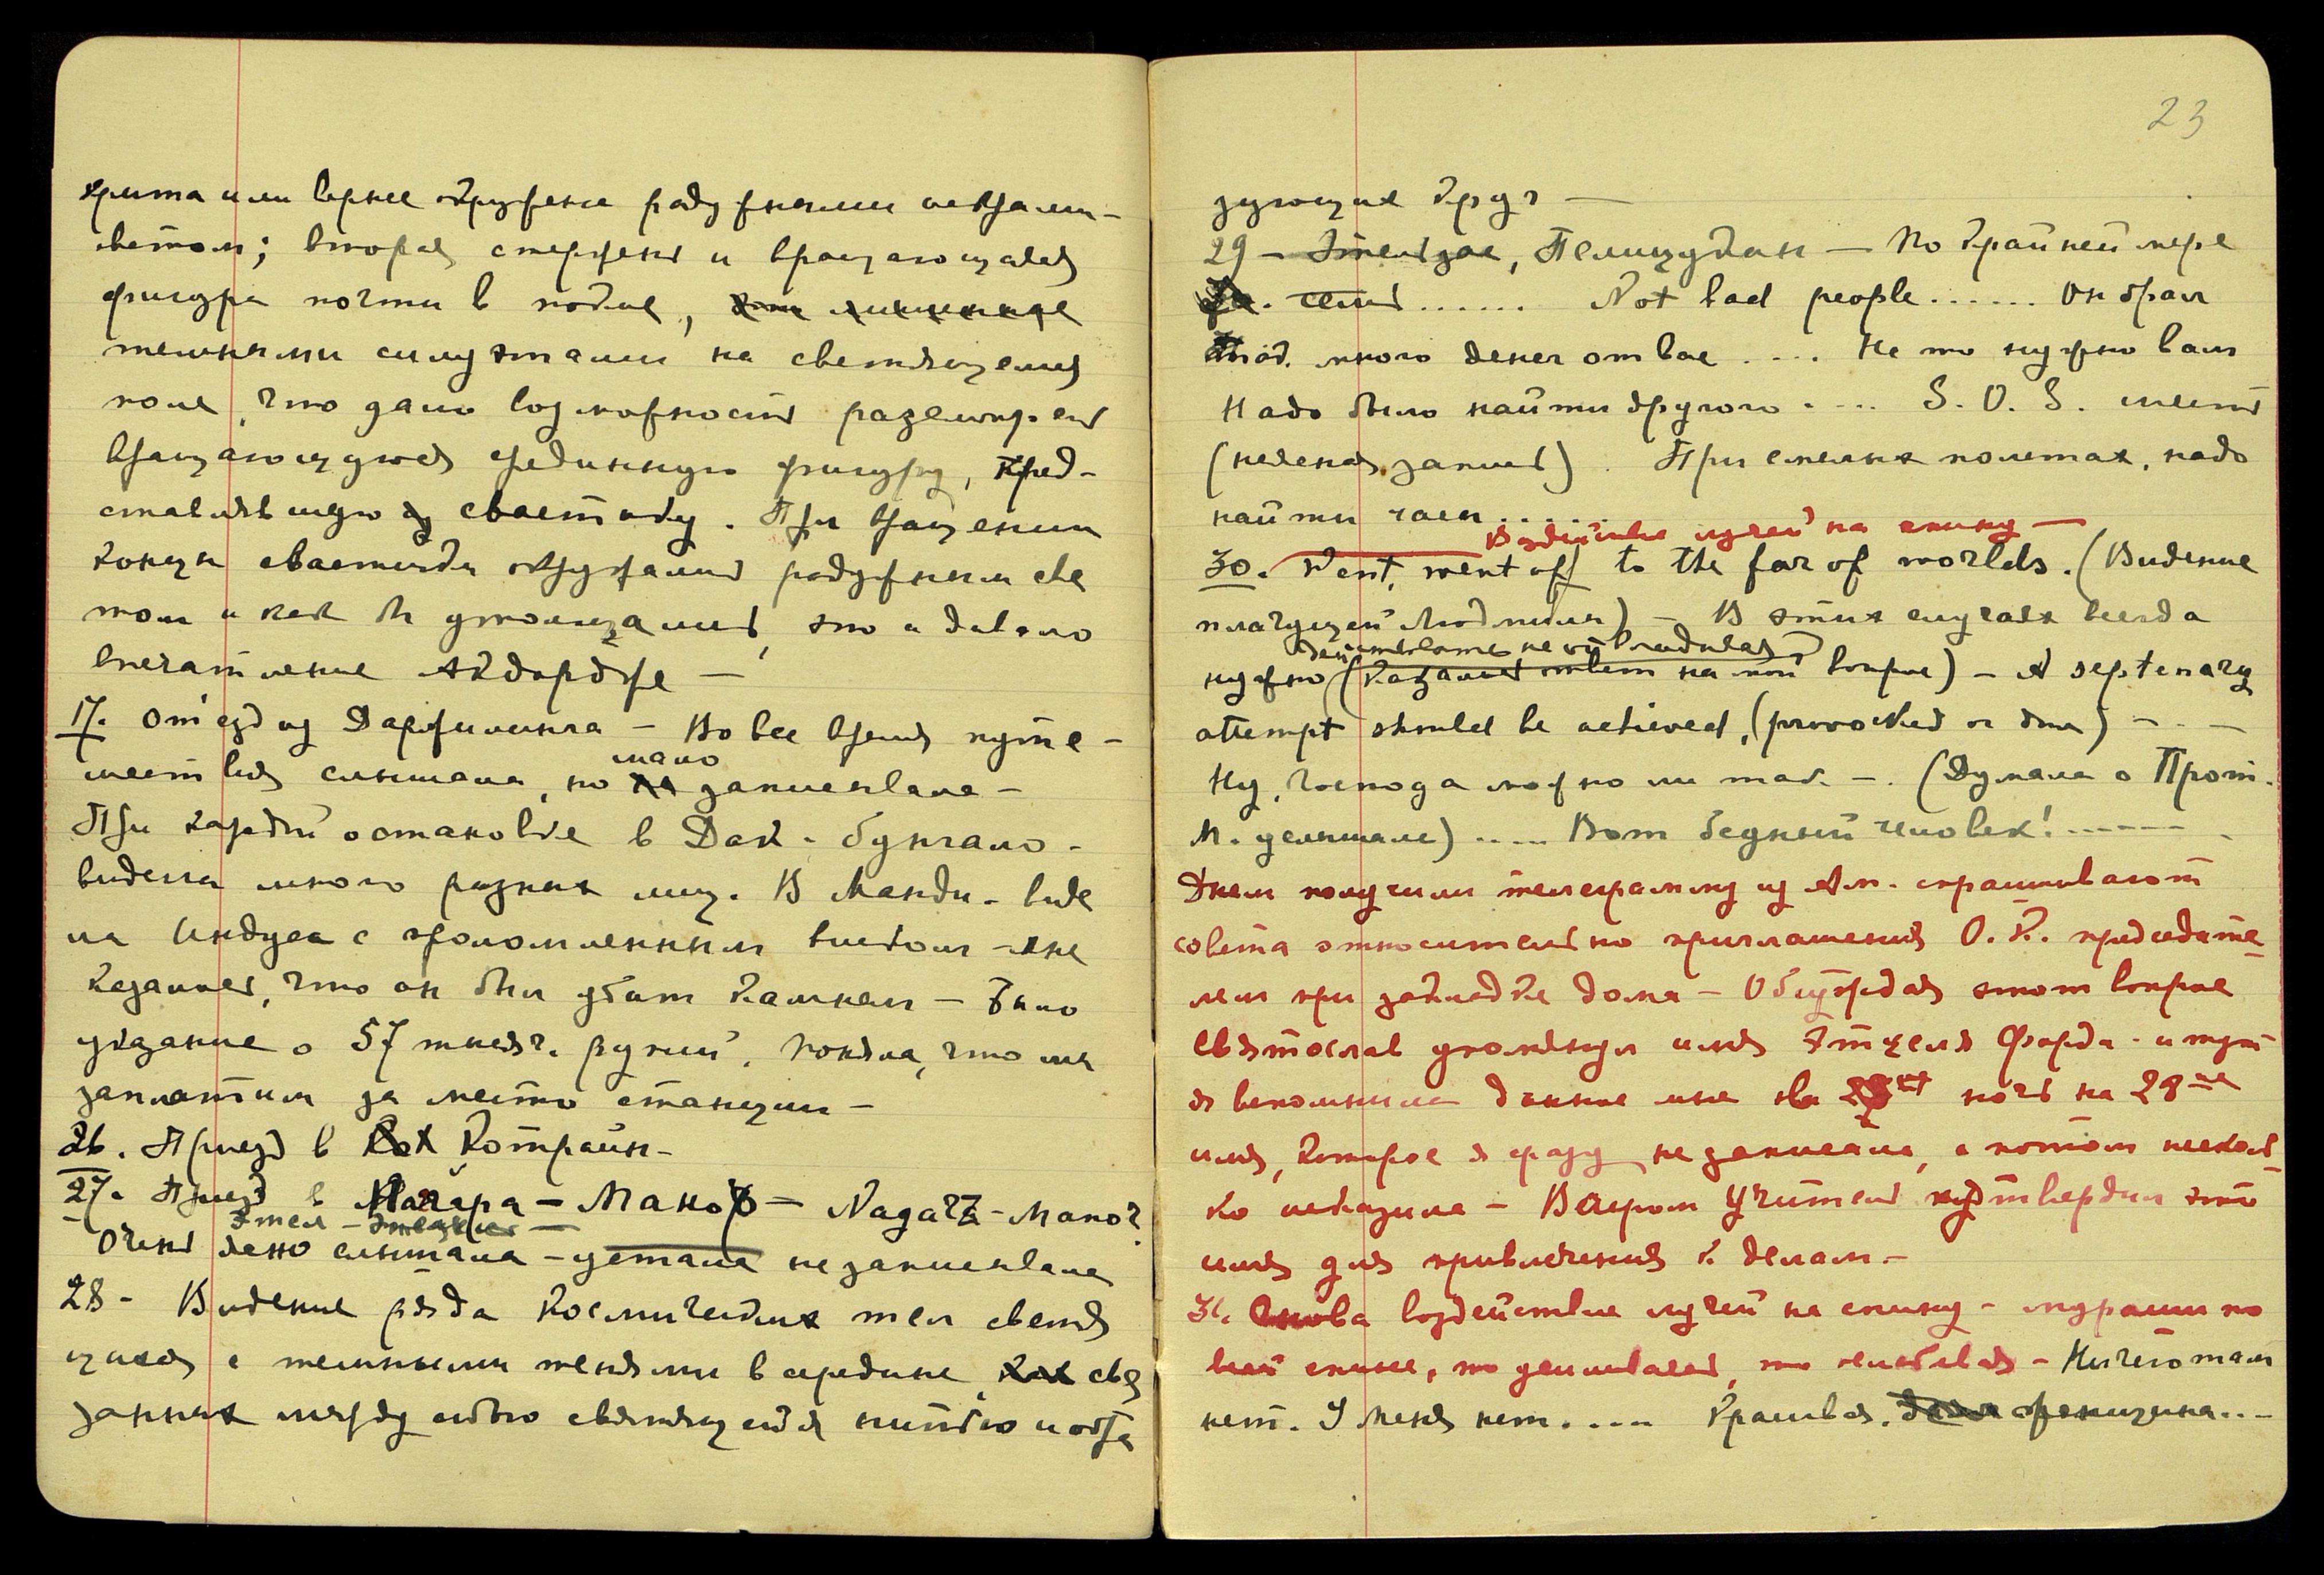 крыта или вернее окружена радужными искрами-
светом; вторая стержень и вращающаяся
фигура почти в покое,
темными силуэтами на светящемся
поле, что дало возможность рассмотреть
вращающуюся срединную фигуру, пред-
ставлявшую свастику. При вращении
концы свастики окружались радужным све
том и как бы утолщались, это и давало
впечатление
17. Отъезд из Дарджилинга – Во все время путе-
шествия слышала, но мало записывала –
При каждой остановке в Дак-бунгало-
видела много разных лиц. В Манди-виде
ла индуса с проломленным виском – мне
казалось, что он был убит камнем – Было
указание о 57 тысяч. рупий. Поняла, что мы
заплатим за место станции –
26. Приезд в Катрайн-
27. Приезд в Нагара-Манор – Nagar-Manor
Этел –
Очень ясно слышала – устала не записывала
28- Видение ряда космических тел светя
щихся с темными тенями в середине, свя
занных между собою светящейся нитью и обра
23
зующих круг –
29 – – По крайней мере
...... Not bad people...... Он брал
много денег от вас .... Не то нужно вам
Надо было найти другого .... S.O.S. шесть
(неясная запись). При смелых полетах, надо
найти часы......
Воздействие лучей на спину –
30. Went, went off to the far of worlds. (Видение
плачущей Людмилы) – В этих случаях всегда
действовать не откладывая
нужно (казалось ответ на мой вопрос) – A septenary
attempt should be achieved, (provoked or done) – . –
Ну, господа можно ли так –. (Думала о Прот.
М. услышала) ..... Вот бедный человек! ------
Днем получили телеграмму из Ам. спрашивают
совета относительно приглашения О.К. председате-
лем при закладке дома – Обсуждая этот вопрос
Святослав упомянул имя Этцеля Форда – и тут
я вспомнила данное мне на ночь на 28ое
имя, которое я сразу не записала, а потом несколь-
ко исказила – Вечером Учитель подтвердил это
имя для привлечения к делам –
31. Снова воздействие лучей на спину – мурашки по
всей спине, то усиливаясь, то ослабевая – Ничего там
нет. У меня нет..... Красивая. женщина...–